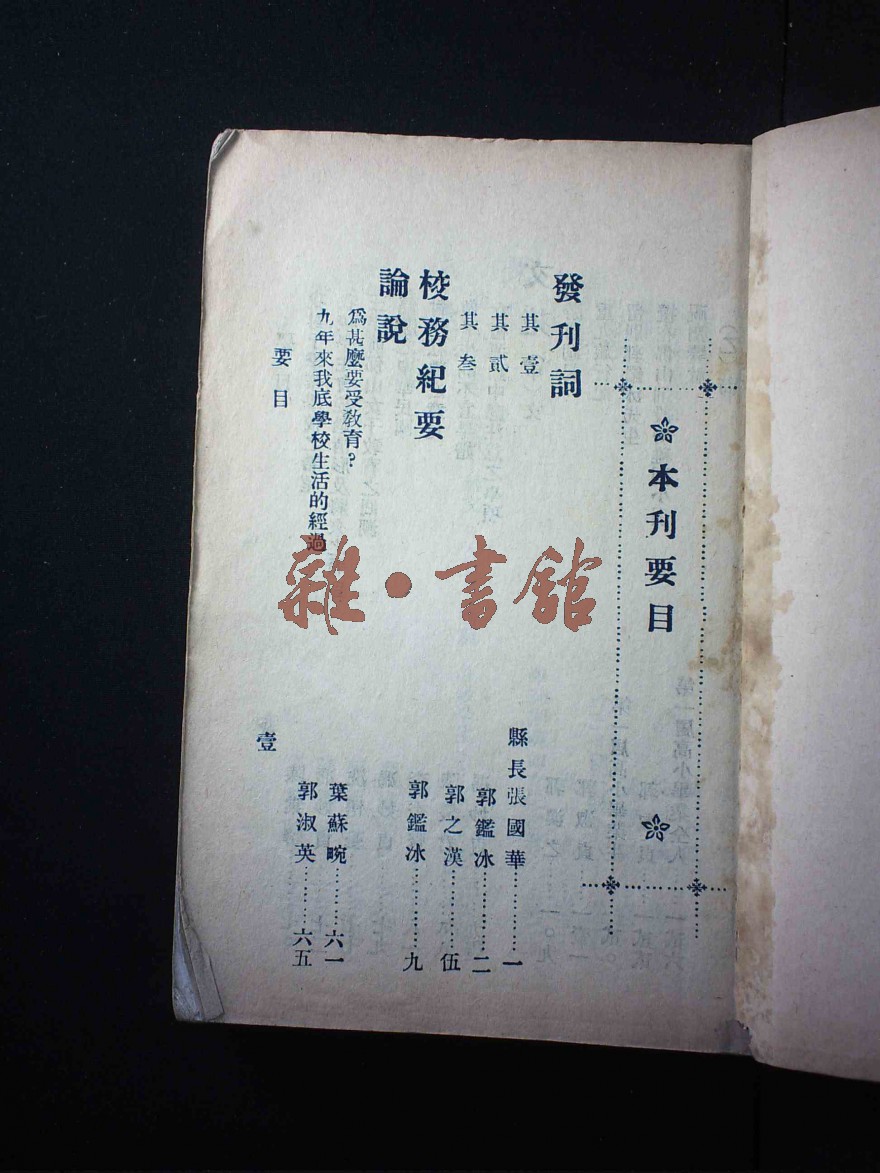 本刊要目
發刊詞
其壹 縣長張國華……一
其貳 郭鑑冰……二
其叁 郭之漢……伍
校務紀要 郭鑑冰……九
論說
爲甚麼要受教育？ 葉蘇畹……六一
九年來我底學校生活的經過 郭淑英……六五
要目 壹
雜·書館